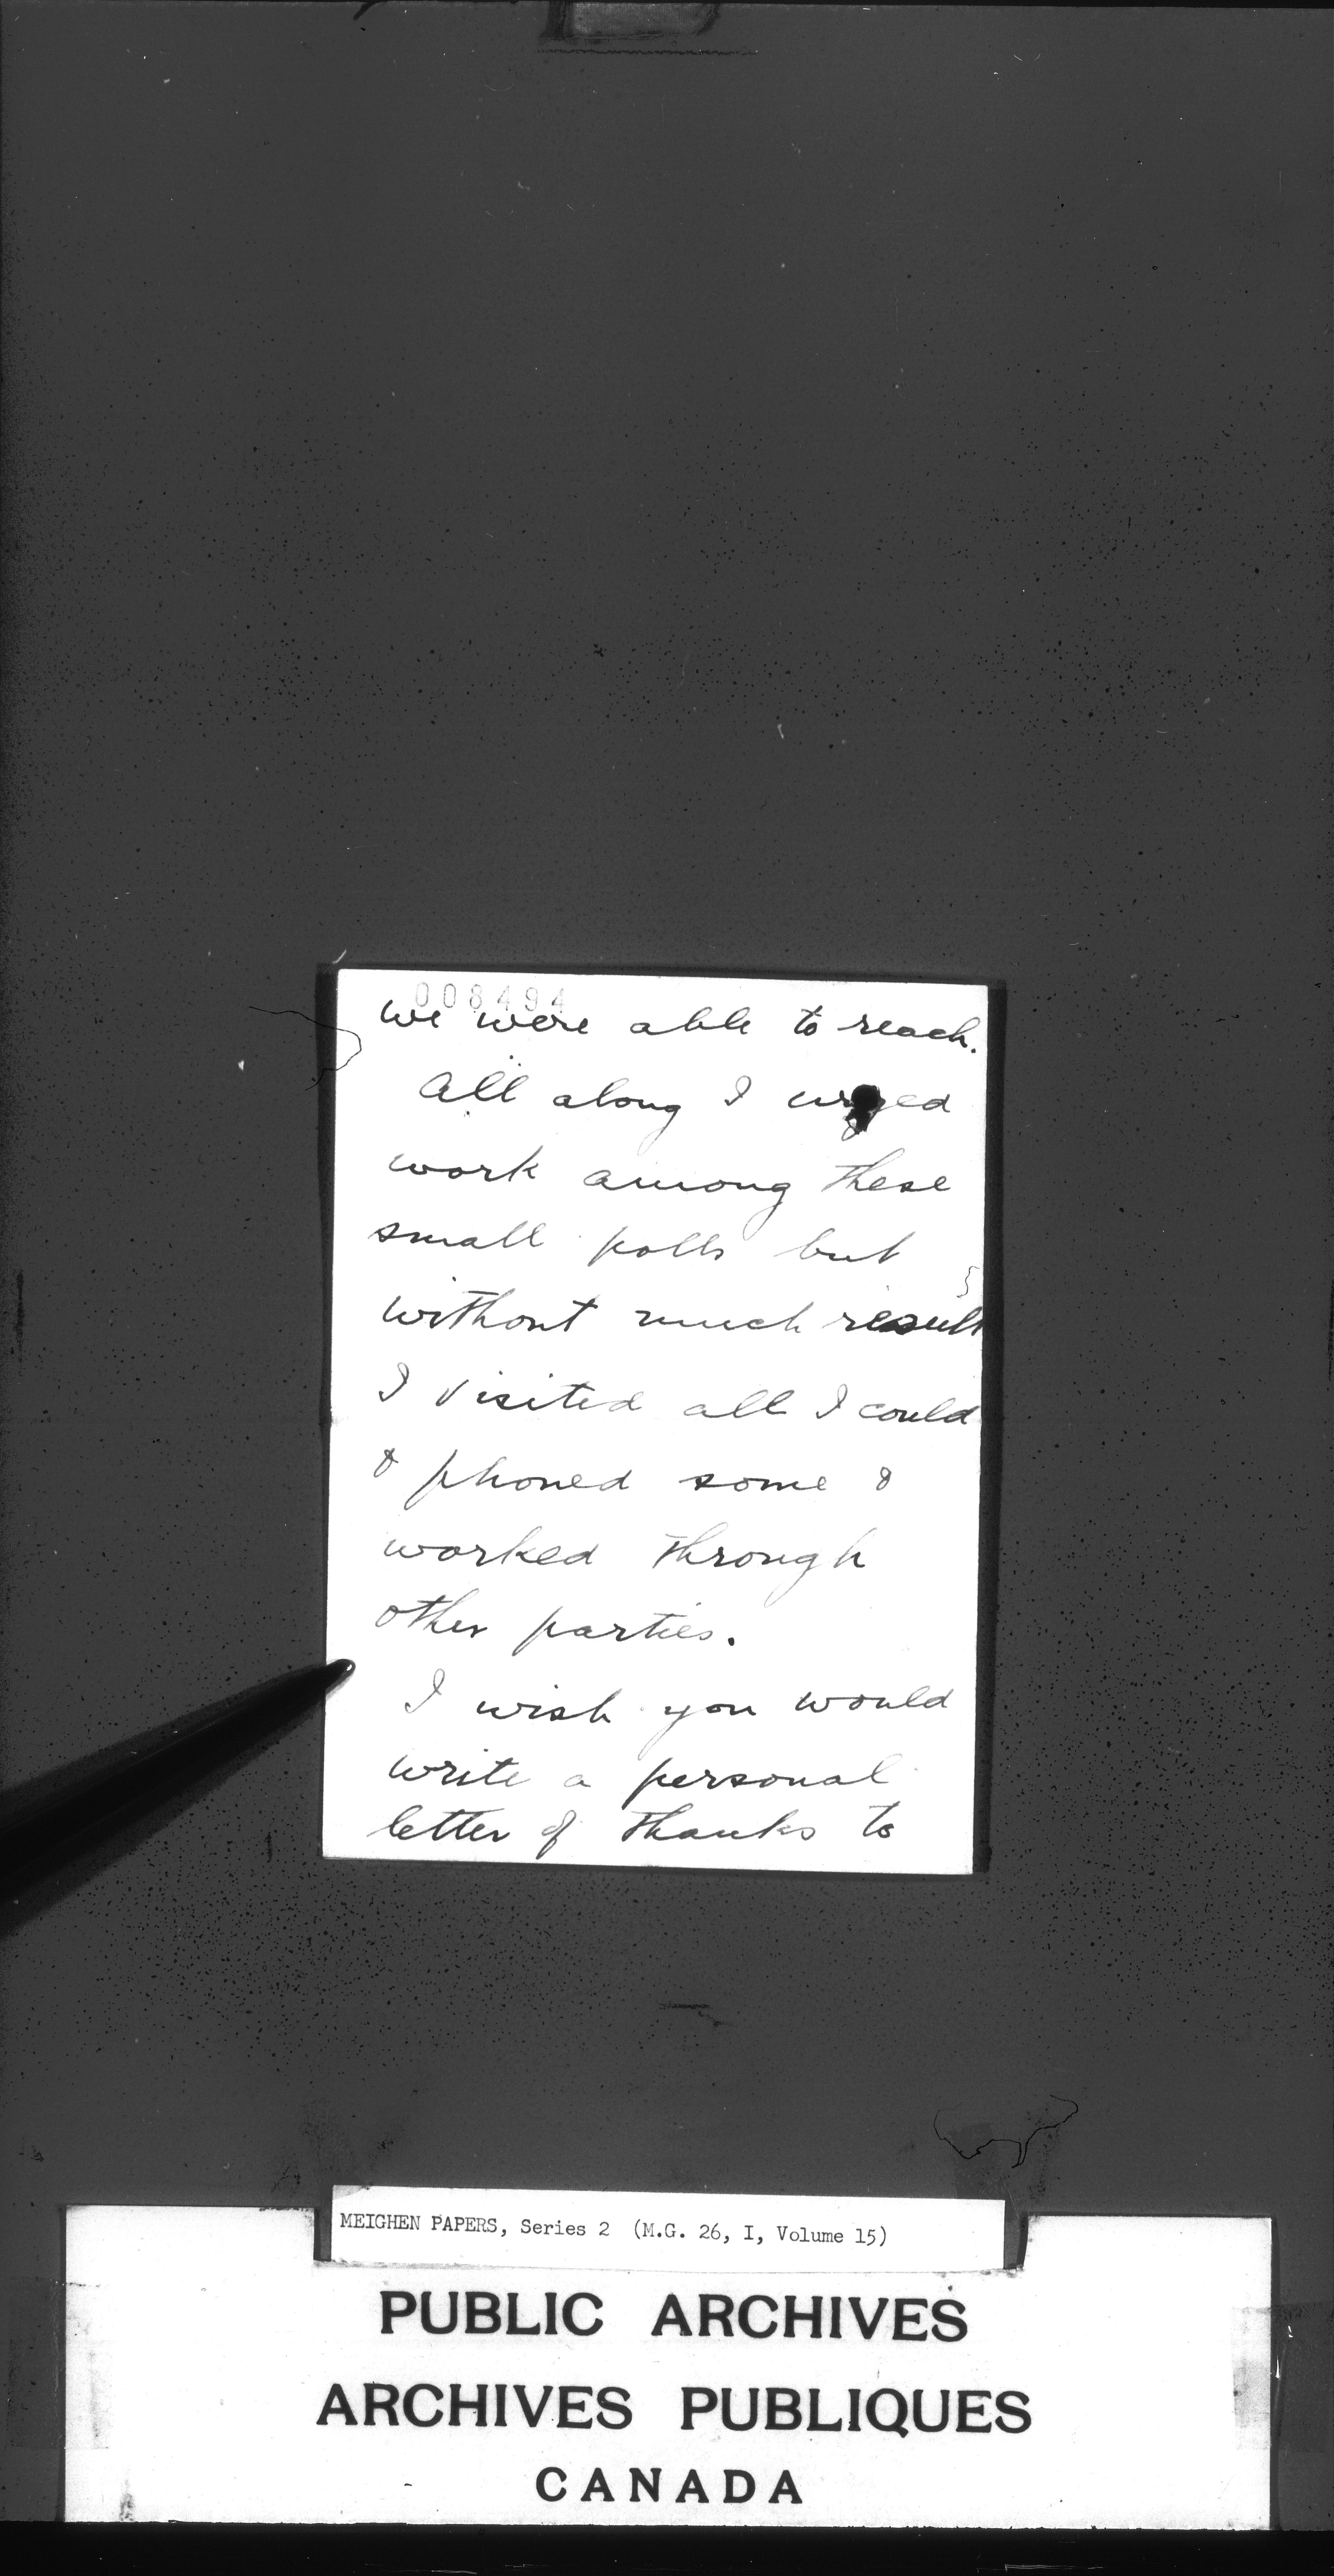 008494
we were able to reach.
All along I urged
work among these
small polls but
without much result
I visited all I could
& phoned some &
worked through
other parties.
I wish you would
write a personal
letter of thanks to
MEIGHEN PAPERS, Series 2 (M.G. 26, I, Volume 15)
PUBLIC ARCHIVES
ARCHIVES PUBLIQUES
CANADA